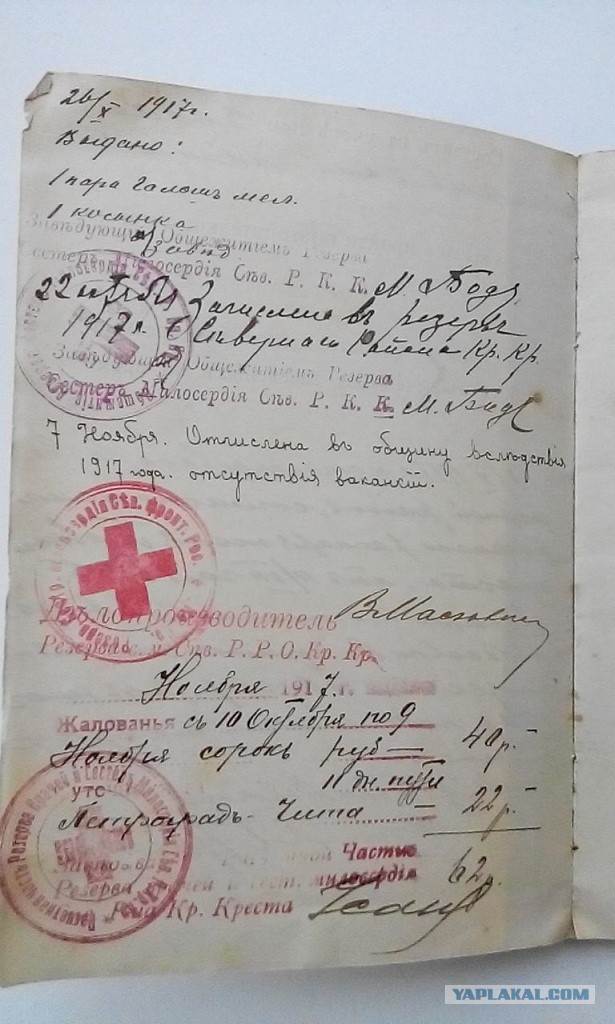 26/X 1917 г.
Выдано:
1 пара галошъ мел.
1 косынка
Завѣдующ Общежитіемъ Резерва
Завѣд
сестеръ Милосердія Сѣв. Р. К. К. М. Боде
22 Зачислена въ резервъ
1917 г. Сѣвернаго Района Кр. Кр.
Завѣдующая Общежитіемъ Резерва
Сестеръ Милосердія Сѣв. Р. К. К. М. Боде
7 Ноября. Отчислена въ общину вслѣдствія
1917 года. отсутствія вакансій.
Дѣлопроизводитель
Резерва с. м. Сѣв. Р. Р. О. Кр. Кр.
Ноября 1917 г.
Жалованья съ 10 Октября по 9
Ноября сорокъ руб — 40 р. —
11 дн. пути
утс
Петроградъ - Чита — 22 р. —
Частью
Резерва милосердія 62 р.
Кр. Креста
YAPLAKAL.COM